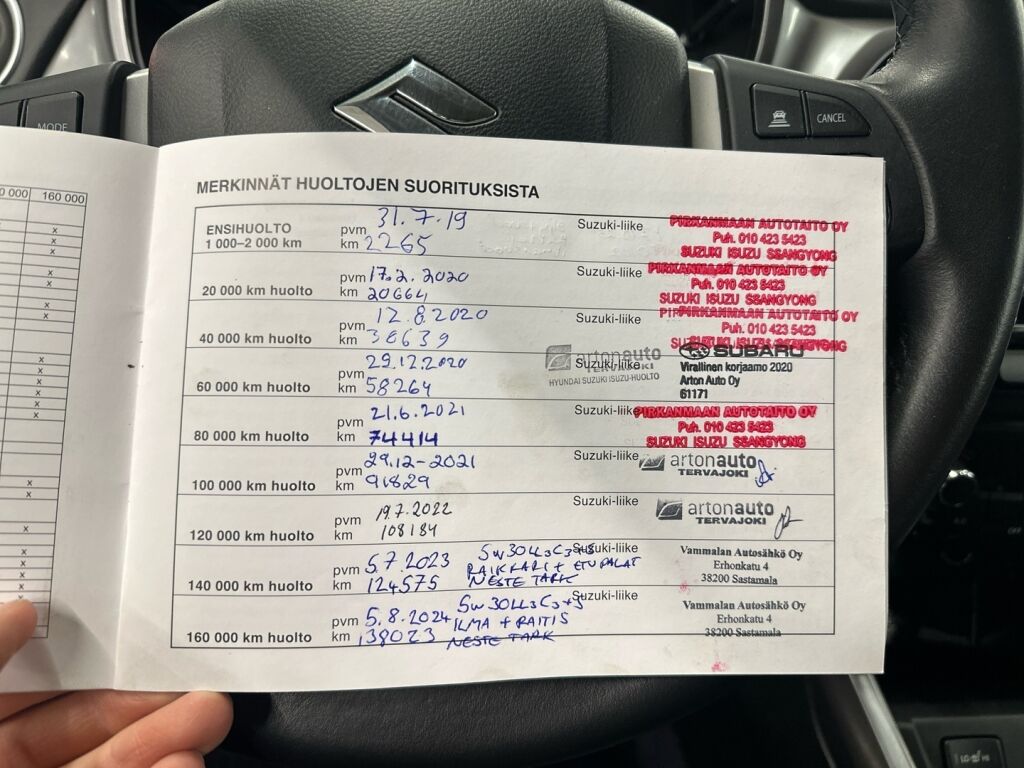 MODE
CANCEL
0 000 160 000
MERKINNÄT HUOLTOJEN SUORITUKSISTA
ENSIHUOLTO
1 000–2 000 km
pvm 31.7.19
km 2265
Suzuki-liike
PIRKANMAAN AUTOTAITO OY
Puh. 010 423 5423
SUZUKI ISUZU SSANGYONG
20 000 km huolto
pvm 17.2.2020
km 20664
Suzuki-liike
PIRKANMAAN AUTOTAITO OY
Puh. 010 423 5423
SUZUKI ISUZU SSANGYONG
40 000 km huolto
pvm 12.8.2020
km 38639
Suzuki-liike
PIRKANMAAN AUTOTAITO OY
Puh. 010 423 5423
SUZUKI ISUZU SSANGYONG
60 000 km huolto
pvm 29.12.2020
km 58264
Suzuki-liike
artonauto
TERVAJOKI
HYUNDAI SUZUKI ISUZU-HUOLTO
SUBARU
Virallinen korjaamo 2020
Arton Auto Oy
61171
80 000 km huolto
pvm 21.6.2021
km 74414
Suzuki-liike
PIRKANMAAN AUTOTAITO OY
Puh. 010 423 5423
SUZUKI ISUZU SSANGYONG
100 000 km huolto
pvm 29.12-2021
km 91829
Suzuki-liike
artonauto
TERVAJOKI
120 000 km huolto
pvm 19.7.2022
km 108184
Suzuki-liike
artonauto
TERVAJOKI
140 000 km huolto
pvm 5.7.2023
km 124575
5W30LL3C3+S
RAIKKARI + ETUPALAT
NESTE TARK
Suzuki-liike
Vammalan Autosähkö Oy
Erhonkatu 4
38200 Sastamala
160 000 km huolto
pvm 5.8.2024
km 138023
5W30LL3C3+S
ILMA + RAITIS
NESTE TARK
Suzuki-liike
Vammalan Autosähkö Oy
Erhonkatu 4
38200 Sastamala